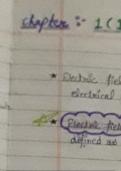 chapter :- 1 (
★ Electric fiel
electrical
Electric fiel
defined as